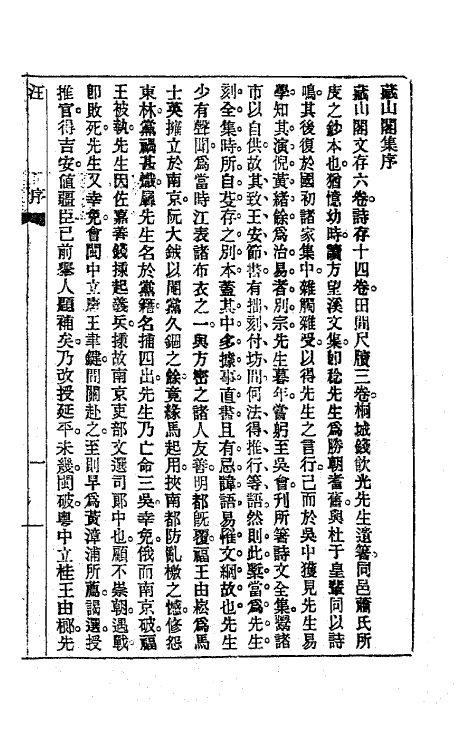 藏山閣集序
藏山閣文存六卷。詩存十四卷。田間尺牘三卷。桐城錢飲光先生遺箸。同邑蕭氏所
庋之鈔本也。猶憶幼時。讀方望溪文集。即稔先生爲勝朝耆舊。與杜于皇輩同以詩
鳴。其後復於國初諸家集中。雜觸雜受。以得先生之言行。已而於吳中獲見先生易
學。知其演倪黃緒餘。爲治易者別宗。先生暮年。嘗躬至吳會。刊所箸詩文全集。鬻諸
市以自供。故其致王安節書。有拙刻付坊間。何法得推行等語。然則此槧當爲先生
刻全集時。所自芟存之別本。蓋其中多據事直書。且有忌諱語。易罹文網故也。先生
少有聲聞。爲當時江表諸布衣之一。與方密之諸人友善。明都既覆。福王由崧爲馬
士英擁立於南京。阮大鋮以閹黨久錮之餘。竟緣馬起用。挾南都防亂檄之憾。修怨
東林。黨禍甚熾。屬先生名於黨籍。名捕四出。先生乃亡命三吳。幸免。俄而南京破。福
王被執。先生因佐嘉善錢㯋起義兵。㯋故南京吏部文選司郎中也。顧不崇朝。遇戰
即敗死。先生又幸免。會閩中立唐王聿鍵。間關赴之。至則早爲黃漳浦所薦。謁選。授
推官。得吉安。値疆臣已前舉人題補矣。乃改授延平。未幾閩破。粵中立桂王由榔。先
汪
序
一